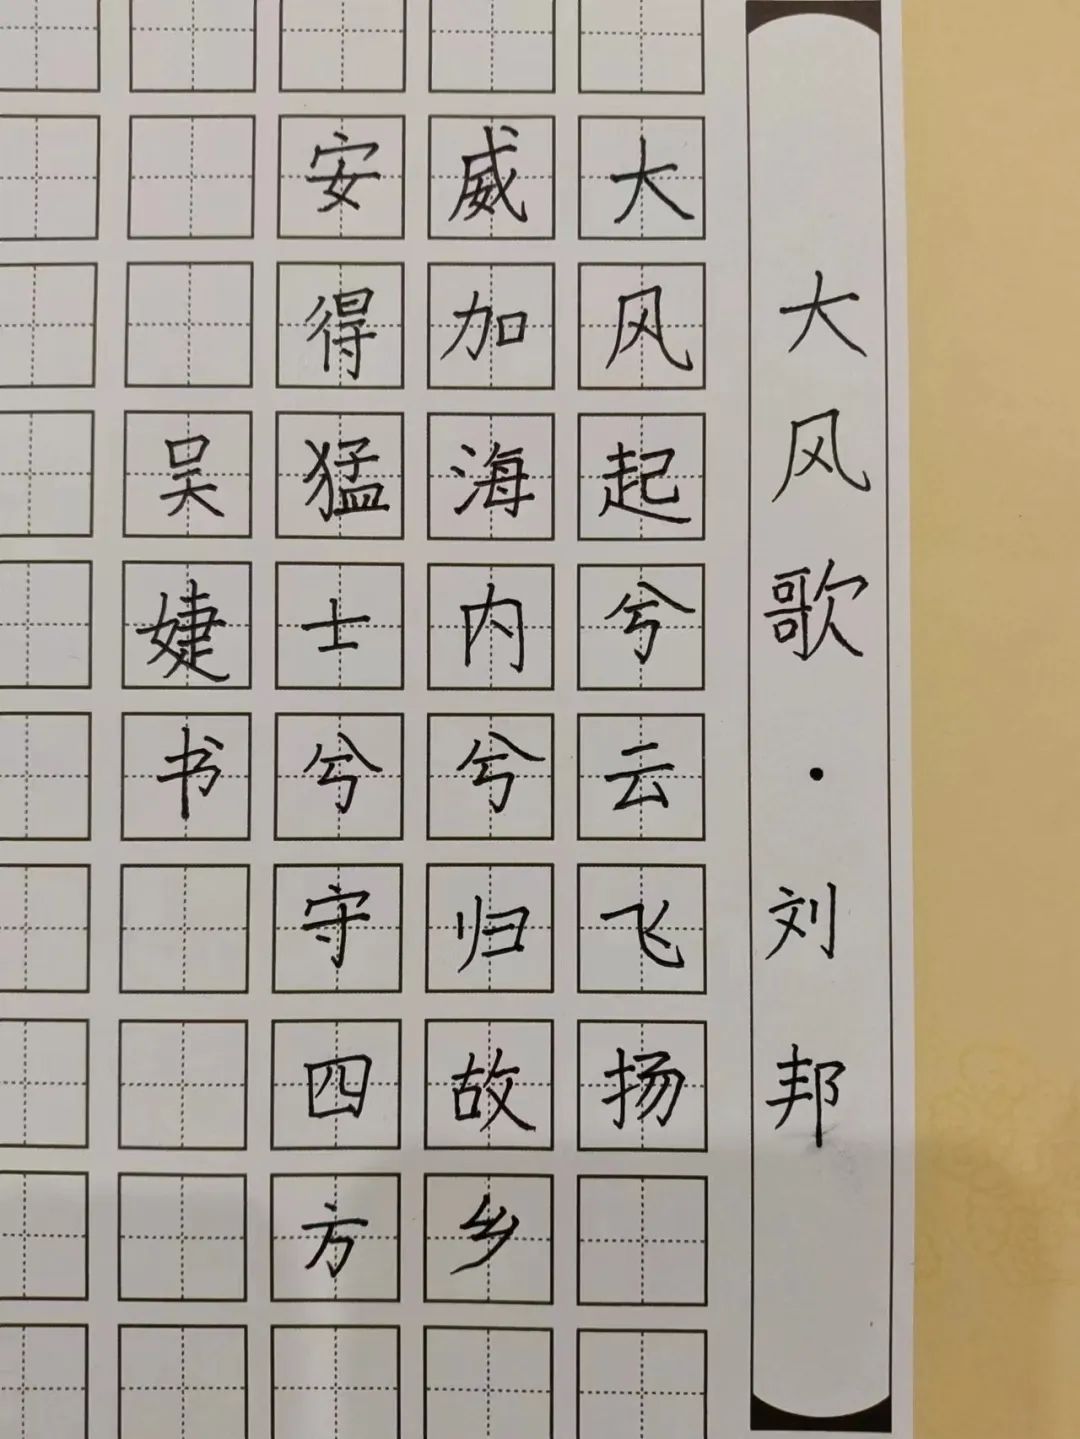 大风歌·刘邦
大风起兮云飞扬
威加海内兮归故乡
安得猛士兮守四方
吴婕书